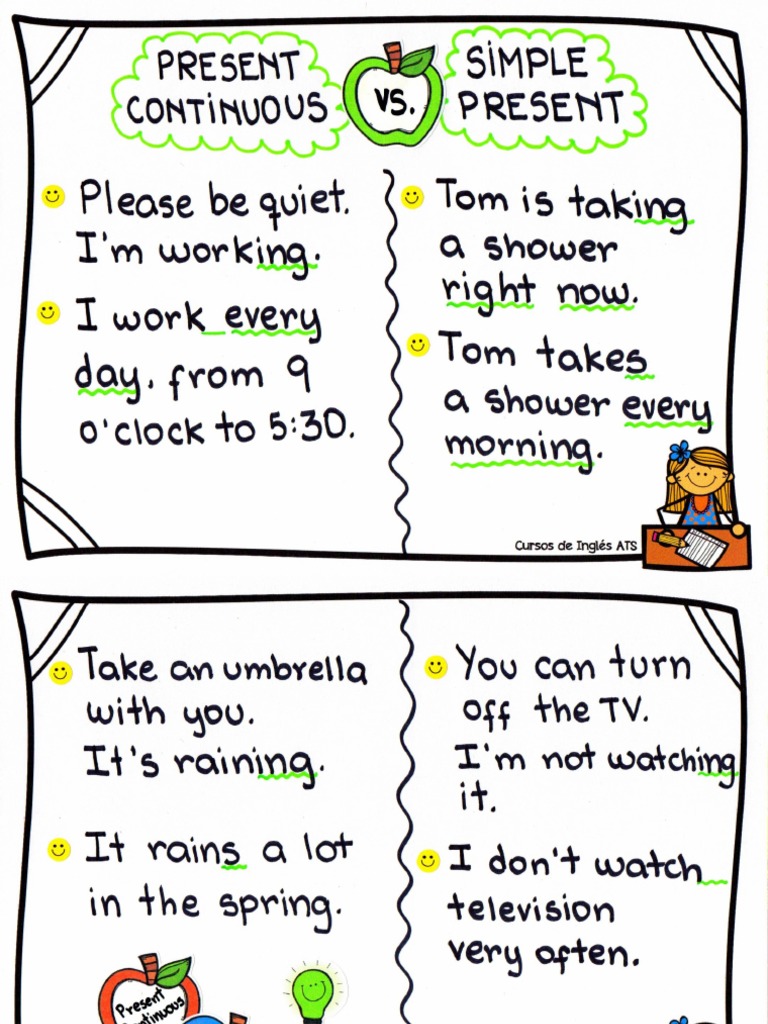 PRESENT
CONTINUOUS
VS.
SIMPLE
PRESENT
Please be quiet.
I'm working.
I work every
day. from 9
o'clock to 5:30.
Tom is taking
a shower
right now.
Tom takes
a shower every
morning.
Cursos de Inglés ATS
Take an umbrella
with you.
It's raining.
It rains a lot
in the spring.
You can turn
off the TV.
I'm not watching
it.
I don't watch
television
very often.
Present
Continuous